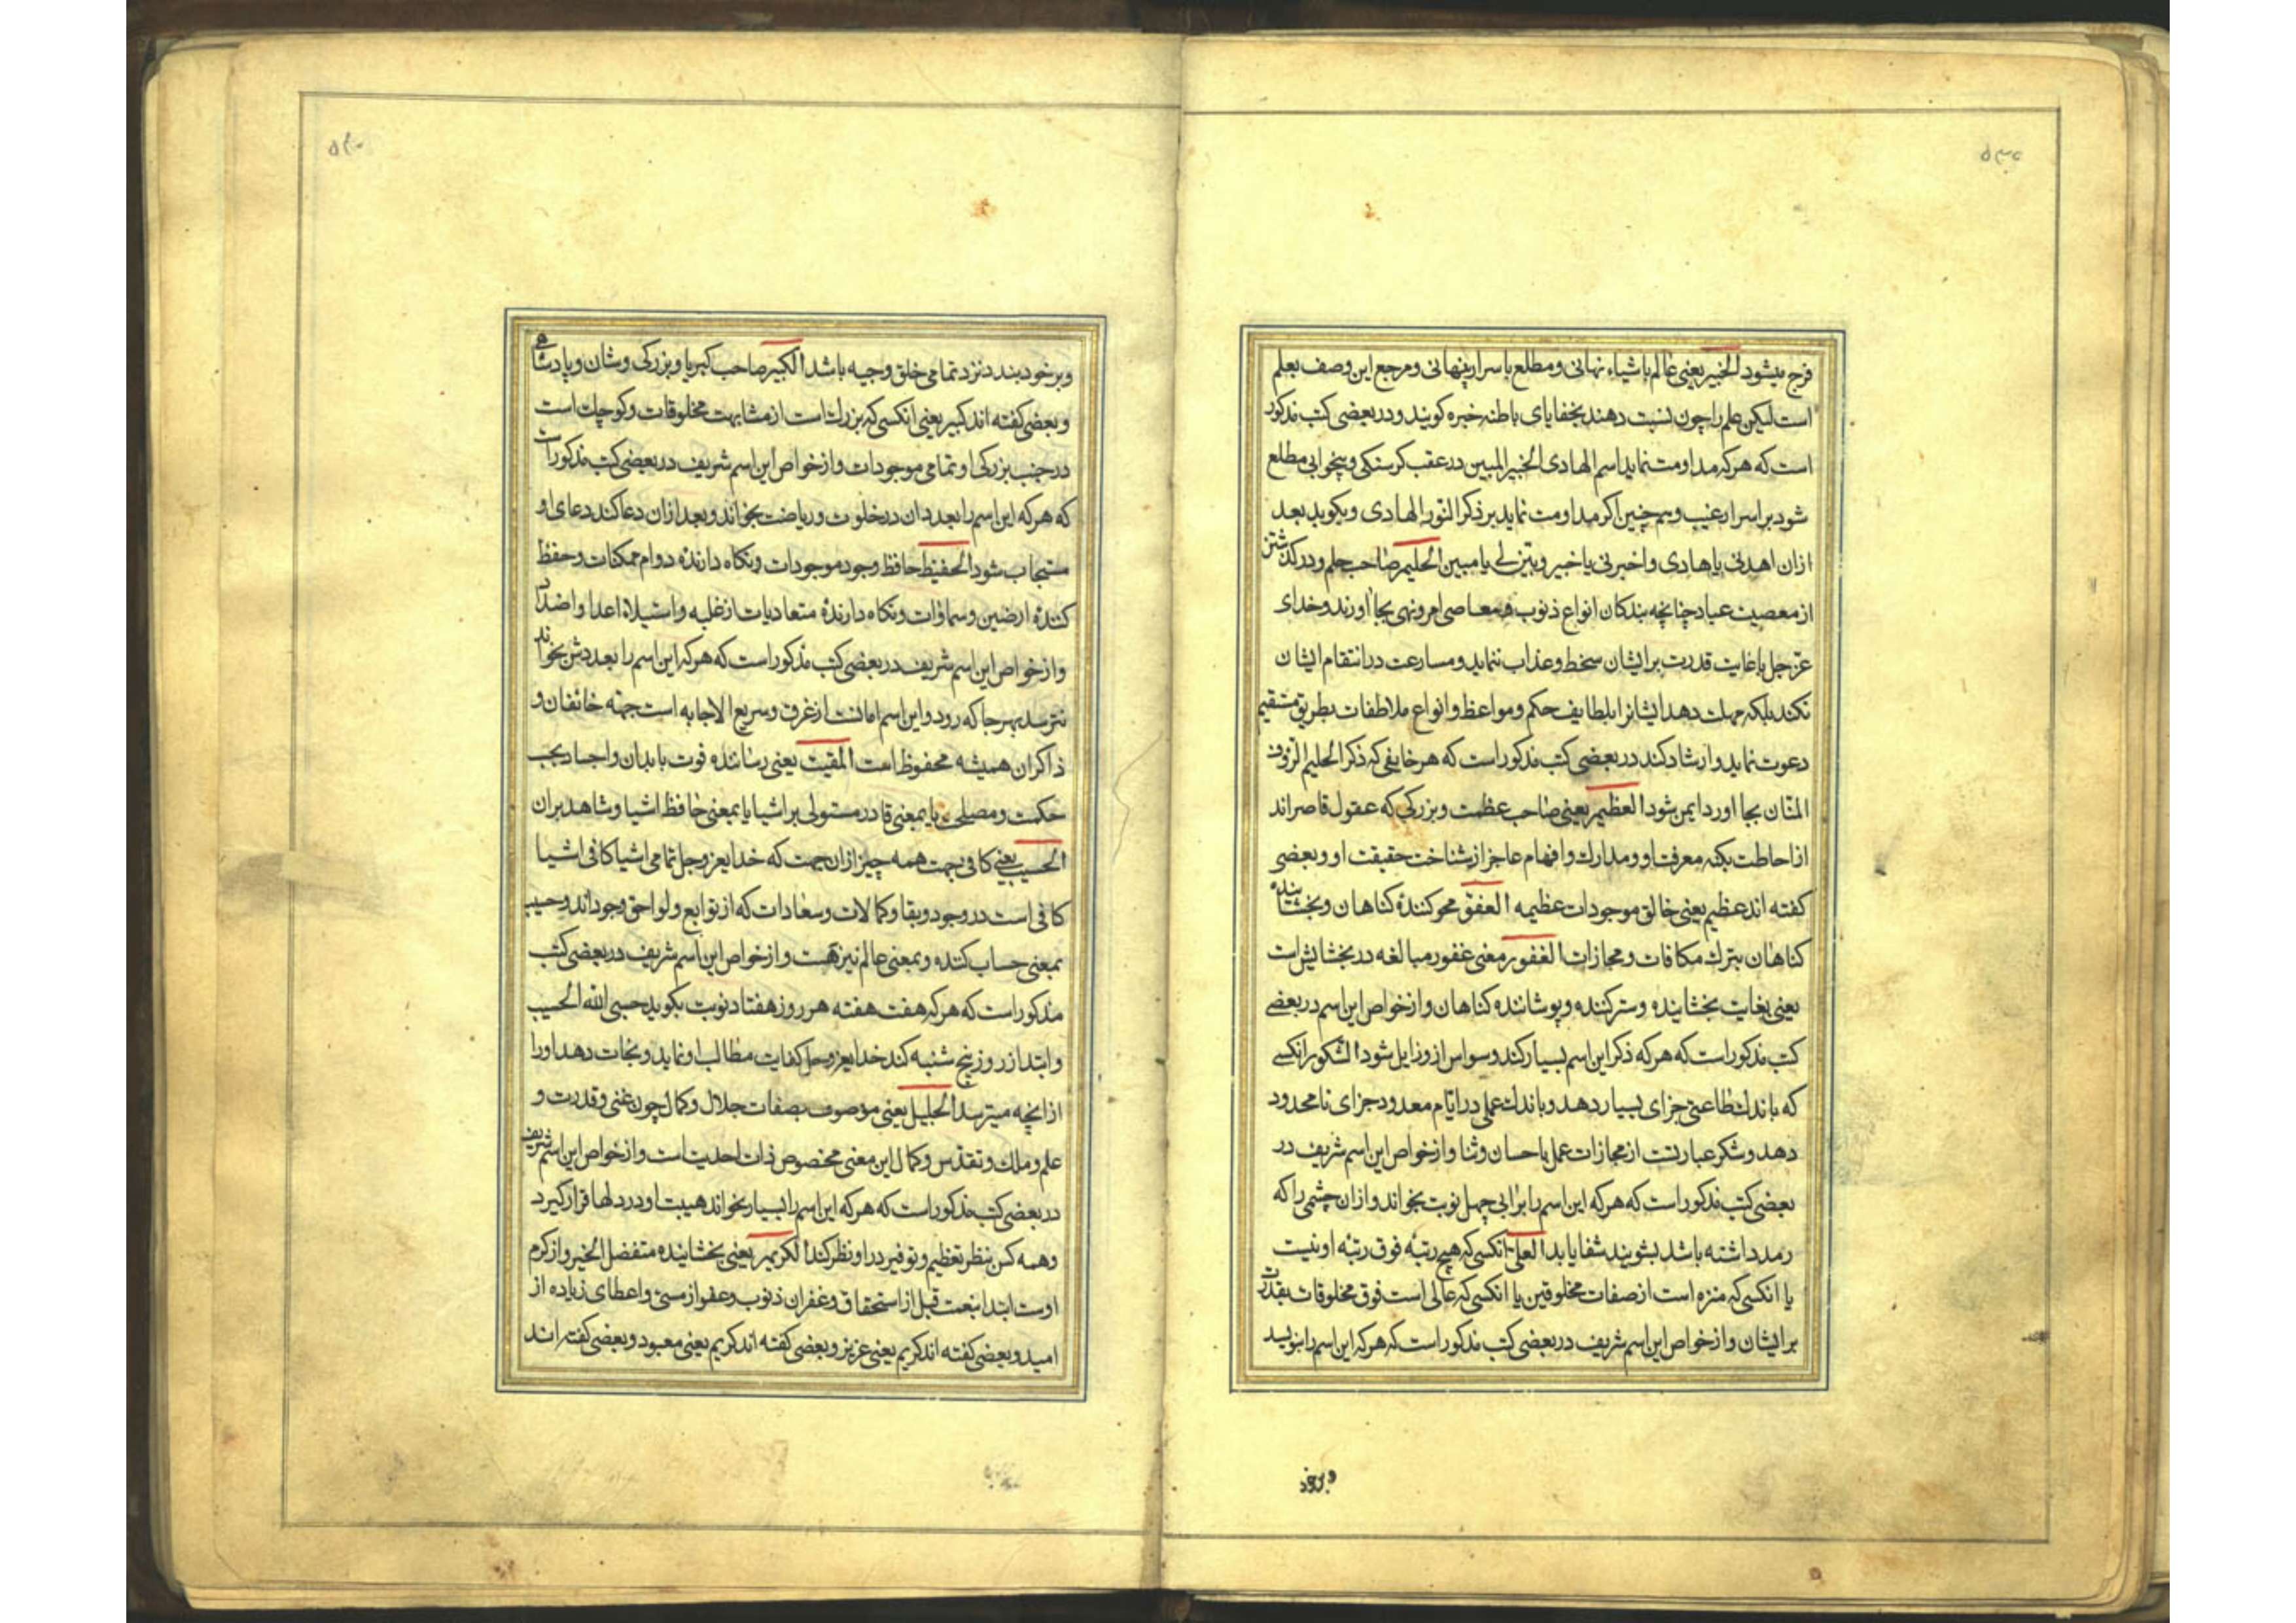 ۵۳۹
فرج میشود الخبیر یعنی عالم باشیاء نهانی و مطلع باسرار پنهانی و مرجع این وصف بعلم
است لیکن علم را چون نسبت دهند بخفایای باطنه خبره کویند و در بعضی کتب مذکور
است که هرکه مداومت نماید اسم الهادی الخبیر المبین در عقب کرسنکی و بیخوابی مطلع
شود بر اسرار غیب و هم چنین اکر مداومت نماید بر ذکر النور الهادی و بکوید بعد
ازان اهدنی یا هادی و اخبرنی یا خبیر و بین لی یا مبین الحلیم صاحب حلم و درکذشتن
از معصیت عباد چنانچه بندکان انواع ذنوب و معاصی امر و نهی بجا اورند و خدای
عز جل با غایت قدرت بر ایشان سخط و عذاب ننماید و مسارعت در انتقام ایشان
نکند بلکه مهلت دهد ایشانرا بلطایف حکم و مواعظ و انواع ملاطفات بطریق مستقیم
دعوت نماید و ارشاد کند در بعضی کتب مذکور است که هر خایفی که ذکر الحلیم الرؤف
المنان بجا اورد ایمن شود العظیم یعنی صاحب عظمت و بزرکی که عقول قاصراند
از احاطت بکنه معرفت او و مدارك و افهام عاجز از شناخت حقیقت او و بعضی
کفته اند عظیم یعنی خالق موجودات عظیمه العفو محو کنندۀ کناهان و بخشاینده
کناهان بترك مکافات و مجازات الغفور معنی غفور مبالغه در بخشایش است
یعنی بغایت بخشاینده و ستر کننده و پوشاننده کناهان و از خواص این اسم در بعضی
کتب مذکور است که هرکه ذکر این اسم بسیار کند وسواس از و زایل شود الشکور انکسی
که باندك طاعتی جزای بسیار دهد و باندك عملی در ایام معدود جزای نامحدود
دهد و شکر عبارتست از مجازات عمل باحسان و ثنا و از خواص این اسم شریف در
بعضی کتب مذکور است که هرکه این اسم را بر ابی چهل نوبت بخواند و ازان چشمی را که
رمد داشته باشد بشویند شفا یابد العلی انکسی که هیچ رتبۀ فوق رتبۀ او نیست
یا انکسی که منزه است از صفات مخلوقین یا انکسی که عالی است فوق مخلوقات بقدرت
بر ایشان و از خواص این اسم شریف در بعضی کتب مذکور است که هرکه این اسم را بنویسد
و برخود
۵۴۰
و بر خود بندد نزد تمامی خلق وجیه باشد الکبیر صاحب کبریا و بزرکی و شان و پادشاهی
و بعضی کفته اند کبیر یعنی انکسی که بزرك است از مشابهت مخلوقات و کوچك است
در جنب بزرکی او تمامی موجودات و از خواص این اسم شریف در بعضی کتب مذکور است
که هرکه این اسم را بعدد ان در خلوت و ریاضت بخواند و بعد ازان دعا کند دعای او
مستجاب شود الحفیظ حافظ وجود موجودات و نکاه دارندۀ دوام ممکنات و حفظ
کنندۀ ارضین و سماوات و نکاه دارندۀ متعادیات از غلبه و استیلاء اعدا و اضداد
و از خواص این اسم شریف در بعضی کتب مذکور است که هرکه این اسم را بعددش بخواند
نترسد بهر جا که رود و این اسم امانست از غرق و سریع الاجابه است جهته خائفان و
ذاکران همیشه محفوظ است المقیت یعنی رساننده قوت بابدان و اجساد بحب
حکمت و مصلحی یا بمعنی قادر مستولی بر اشیا یا بمعنی حافظ اشیا و شاهد بران
الحسیب یعنی کافی بجهت همه چیز ازان جهت که خدایعز و جل تمامی اشیا کافی اشیا
کافی است در وجود و بقا و کمالات و سعادات که از توابع و لواحق وجود اند و حسیب
بمعنی حساب کننده و بمعنی عالم نیز هست و از خواص این اسم شریف در بعضی کتب
مذکور است که هرکه هفت هفته هر روز هفتاد نوبت بکوید حسبی الله الحسیب
و ابتدا از روز پنج شنبه کند خدایعز وجل کفایت مطالب او نماید و نجات دهد اورا
از انچه میترسد الجلیل یعنی موصوف بصفات جلال و کمال چون غنی و قدرت و
علم و ملك و تقدس و کمال این معنی مخصوص ذات احدیت است و از خواص این اسم شریف
در بعضی کتب مذکور است که هرکه این اسم را بسیار بخواند هیبت او در دلها قرار کیرد
و همه کس بنظر تعظیم و توقیر در او نظر کند الکریم یعنی بخشاینده متفضل الخیر و از کرم
اوست ابتدا بنعمت قبل از استحقاق و غفران ذنوب و عفو از مسئ و اعطای زیاده از
امید و بعضی کفته اند کریم یعنی عزیز و بعضی کفته اند کریم یعنی معبود و بعضی کفته اند